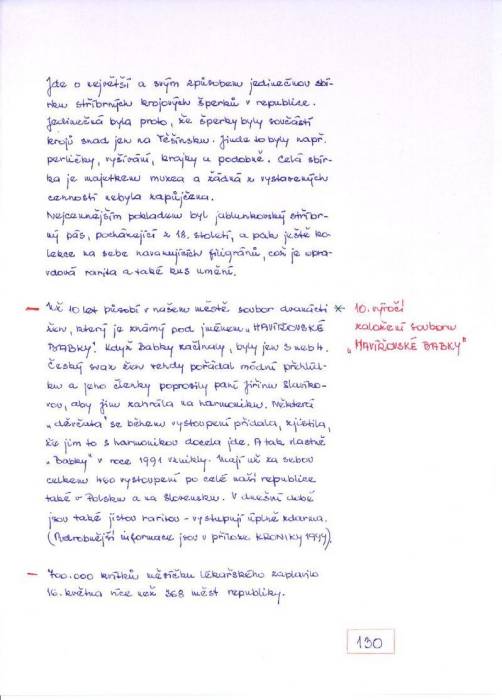 Jde o největší a svým způsobem jedinečnou sbír-
ku stříbrných krojových šperků v republice.
Jedinečná byla proto, že šperky byly součástí
krojů snad jen na Těšínsku. Jinde to byly např.
perličky, vyšívání, krajky a podobně. Celá sbír-
ka je majetkem muzea a žádná z vystavených
cenností nebyla zapůjčena.
Nejcennějším pokladem byl jablunkovský stříbr-
ný pás, pocházející z 18. století, a pak ještě ko-
lekce na sebe navazujících filigránů, což je opra-
vdová rarita a také kus umění.
– Už 10 let působí v našem městě soubor dvanácti *
žen, který je známý pod jménem „HAVÍŘOVSKÉ
BABKY". Když Babky začínaly, byly jen 3 neb 4.
Český svaz žen tehdy pořádal módní přehlíd-
ku a jeho členky poprosily paní Jiřinu Slavíko-
vou, aby jim zahrála na harmoniku. Některá
„děvčata" se během vystoupení přidala, zjistila,
že jim to s harmonikou docela jde. A tak vlastně
„Babky" v roce 1991 vznikly. Mají už za sebou
celkem 460 vystoupení po celé naší republice
také v Polsku a na Slovensku. V dnešní době
jsou také jistou raritou – vystupují úplně zdarma.
(Podrobnější informace jsou v příloze KRONIKY 1999).
10. výročí
založení souboru
„HAVÍŘOVSKÉ BABKY"
– 700.000 kvítků měsíčku lékařského zaplavilo
16. května více než 368 měst republiky.
130